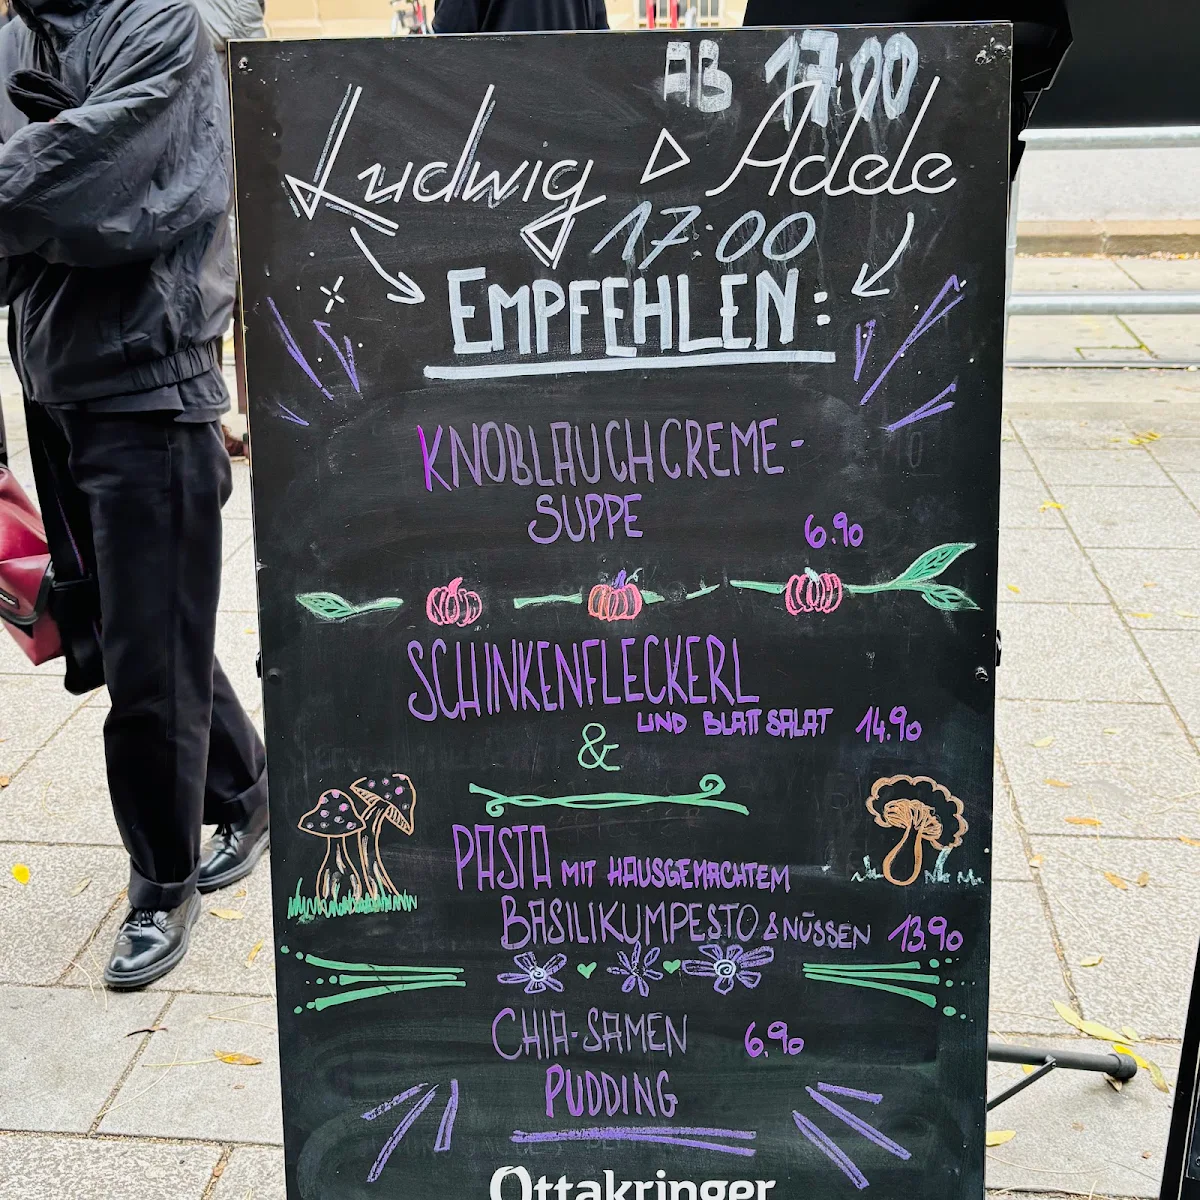 AB 17:00
Ludwig Adele
17:00
EMPFEHLEN:
KNOBLAUCHCREME-
SUPPE
6.90
SCHINKENFLECKERL
UND BLATTSALAT 14.90
&
PASTA MIT HAUSGEMACHTEM
BASILIKUMPESTO & NÜSSEN 13.90
CHIA-SAMEN 6.90
PUDDING
Ottakringer